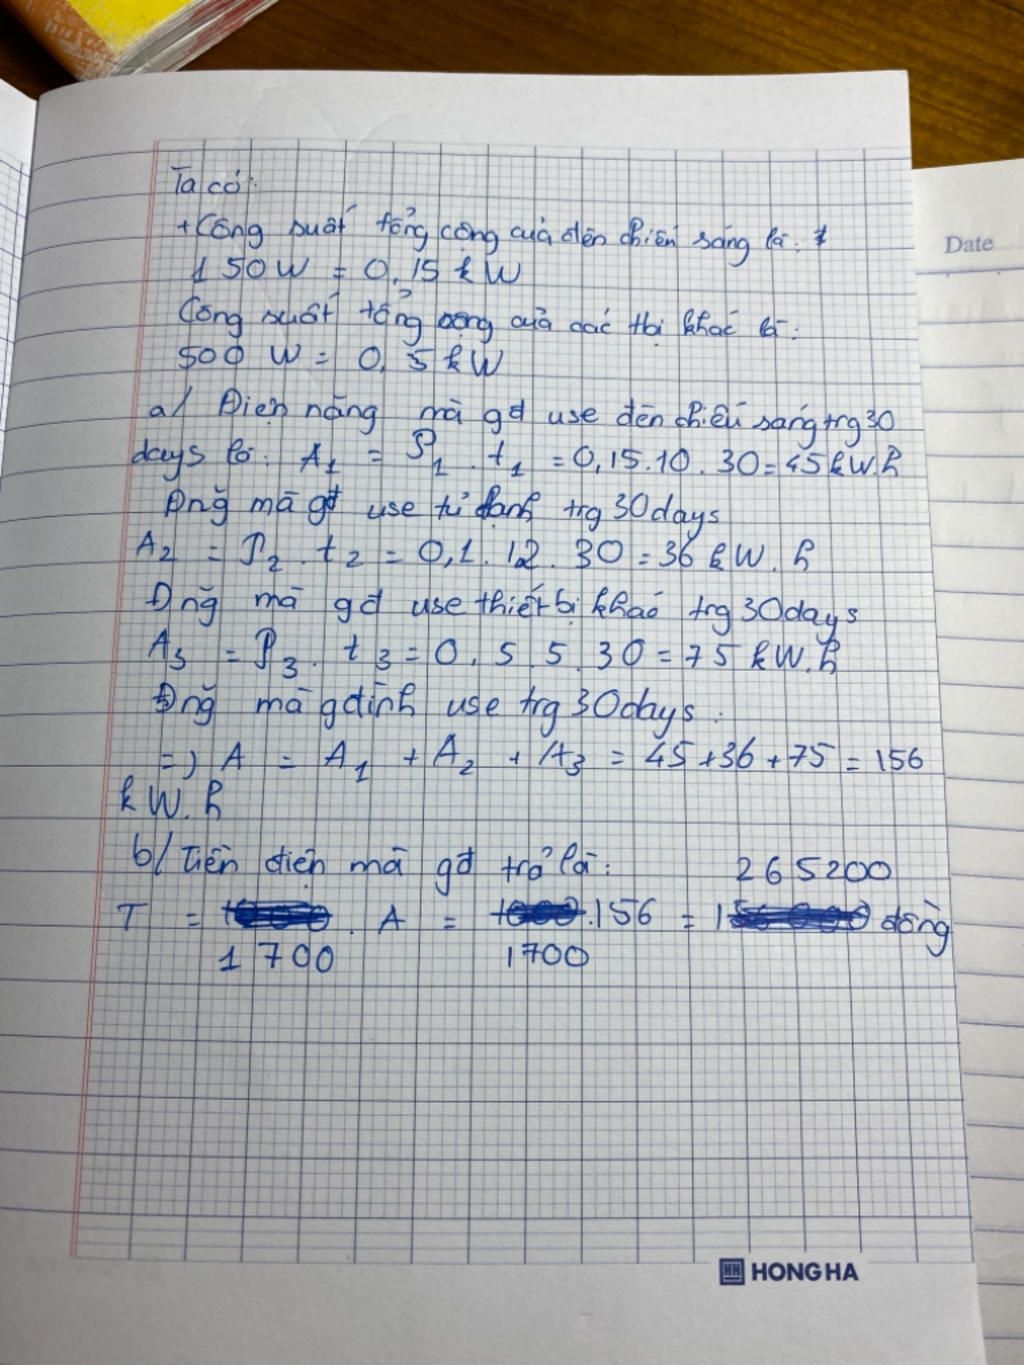 Ta có:
+ Công suất tổng cộng của đèn chiếu sáng là:
150W = 0,15 kW
Công suất tổng cộng của các tbị khác là:
500 W = 0,5 kW
a/ Điện năng mà gđ use đèn chiếu sáng trg 30
days là: A1 = P1 . t1 = 0,15.10.30 = 45 kW.h
Đng̃ mà gđ use tủ lạnh trg 30 days
A2 = P2 . t2 = 0,1.12.30 = 36 kW.h
Đng̃ mà gđ use thiết bị khác trg 30 days
A3 = P3 . t3 = 0,5.5.30 = 75 kW.h
Đng̃ mà gđình use trg 30 days:
=) A = A1 + A2 + A3 = 45+36+75 = 156
kW.h
b/ Tiền điện mà gđ trả là: 265200
T = . A = .156 = đồng
1700 1700
Date
HONG HA